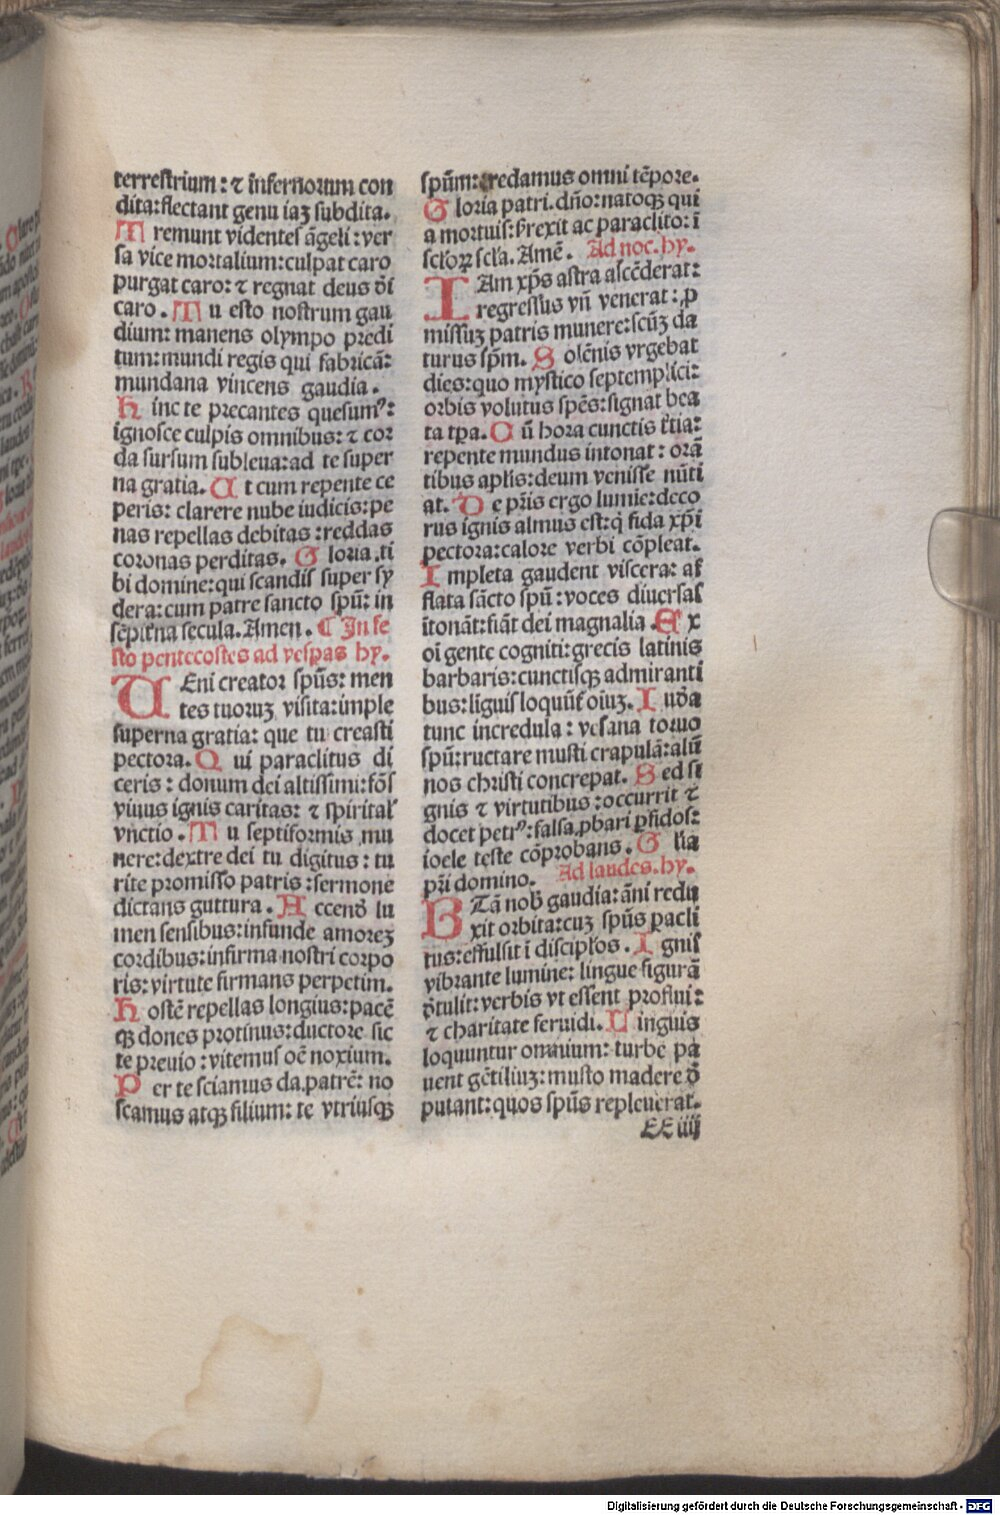 terrestrium: ⁊ infernorum con
dita: flectant genu iaȝ subdita.
Tremunt videntes āgeli: ver
sa vice mortalium: culpat caro
purgat caro: ⁊ regnat deus ōi
caro. Tu esto nostrum gau
dium: manens olympo predi
tum: mundi regis qui fabricā:
mundana vincens gaudia.
Hinc te precantes quesumꝰ:
ignosce culpis omnibus: ⁊ cor
da sursum subleua: ad te super
na gratia. Ut cum repente ce
peris: clarere nube iudicis: pe
nas repellas debitas: reddas
coronas perditas. Gloria ti
bi domine: qui scandis super sy
dera: cum patre sancto spū: in
sēpiterna secula. Amen. ¶ In fe
sto pentecostes ad vesꝑas hy.
UEni creator spūs: men
tes tuoruȝ visita: imple
superna gratia: que tu creasti
pectora. Qui paraclitus di
ceris: donum dei altissimi: fōs
viuus ignis caritas: ⁊ spirital'
vnctio. Tu septiformis mu
nere: dextre dei tu digitus: tu
rite promisso patris: sermone
dictans guttura. Accendē lu
men sensibus: infunde amoreȝ
cordibus: infirma nostri corpo
ris: virtute firmans perpetim.
Hostē repellas longius: pacē
qȝ dones protinus: ductore sic
te preuio: vitemus oē noxium.
Per te sciamus da patrē: no
scamus atqȝ filium: te vtriusqȝ
spūm: credamus omni tēpore.
Gloria patri dño: natoqȝ qui
a mortuis: surrexit ac paraclito: ī
sclōꝝ scl'a. Amē. Ad noc. hy.
IAm xp̄s astra ascēderat:
regressus vñ venerat: ꝓ
missuȝ patris munere: scūȝ da
turus spm. Solēnis vrgebat
dies: quo mystico septemplici:
orbis volutus spēs: signat bea
ta tpa. Cū hora cunctis t̄tia:
repente mundus intonat: orā
tibus aplis: deum venisse nūti
at. De pr̄is ergo lumie: deco
rus ignis almus est: q̄ fida xp̄i
pectora: calore verbi cōpleat.
Impleta gaudent viscera: af
flata sācto spū: voces diuersas
ītonāt: fiāt dei magnalia. Ex
oī gente cogniti: grecis latinis
barbaris: cunctisqȝ admiranti
bus: līguis loquūt̄ oiuȝ. Iudēa
tunc incredula: vesana toruo
spū: ructare musti crapulā: alū
nos christi concrepat. Sed si
gnis ⁊ virtutibus: occurrit ⁊
docet petrꝰ: falsa ꝓbari ꝑfidos:
ioele teste cōprobans. Gl'ia
pr̄i domino. Ad laudes. hy.
BEatā nob̄ gaudia: āni redu
xit orbita: cuȝ spūs paclī
tus: effulsit ī discip̄los. Ignis
vibrante lumine: lingue figurā
ōtulit: verbis vt essent proflui:
⁊ charitate feruidi. Linguis
loquuntur omnium: turbe pa
uent gētiliuȝ: musto madere ō
putant: quos spūs repleuerat.
EE iiij
Digitalisierung gefördert durch die Deutsche Forschungsgemeinschaft - DFG